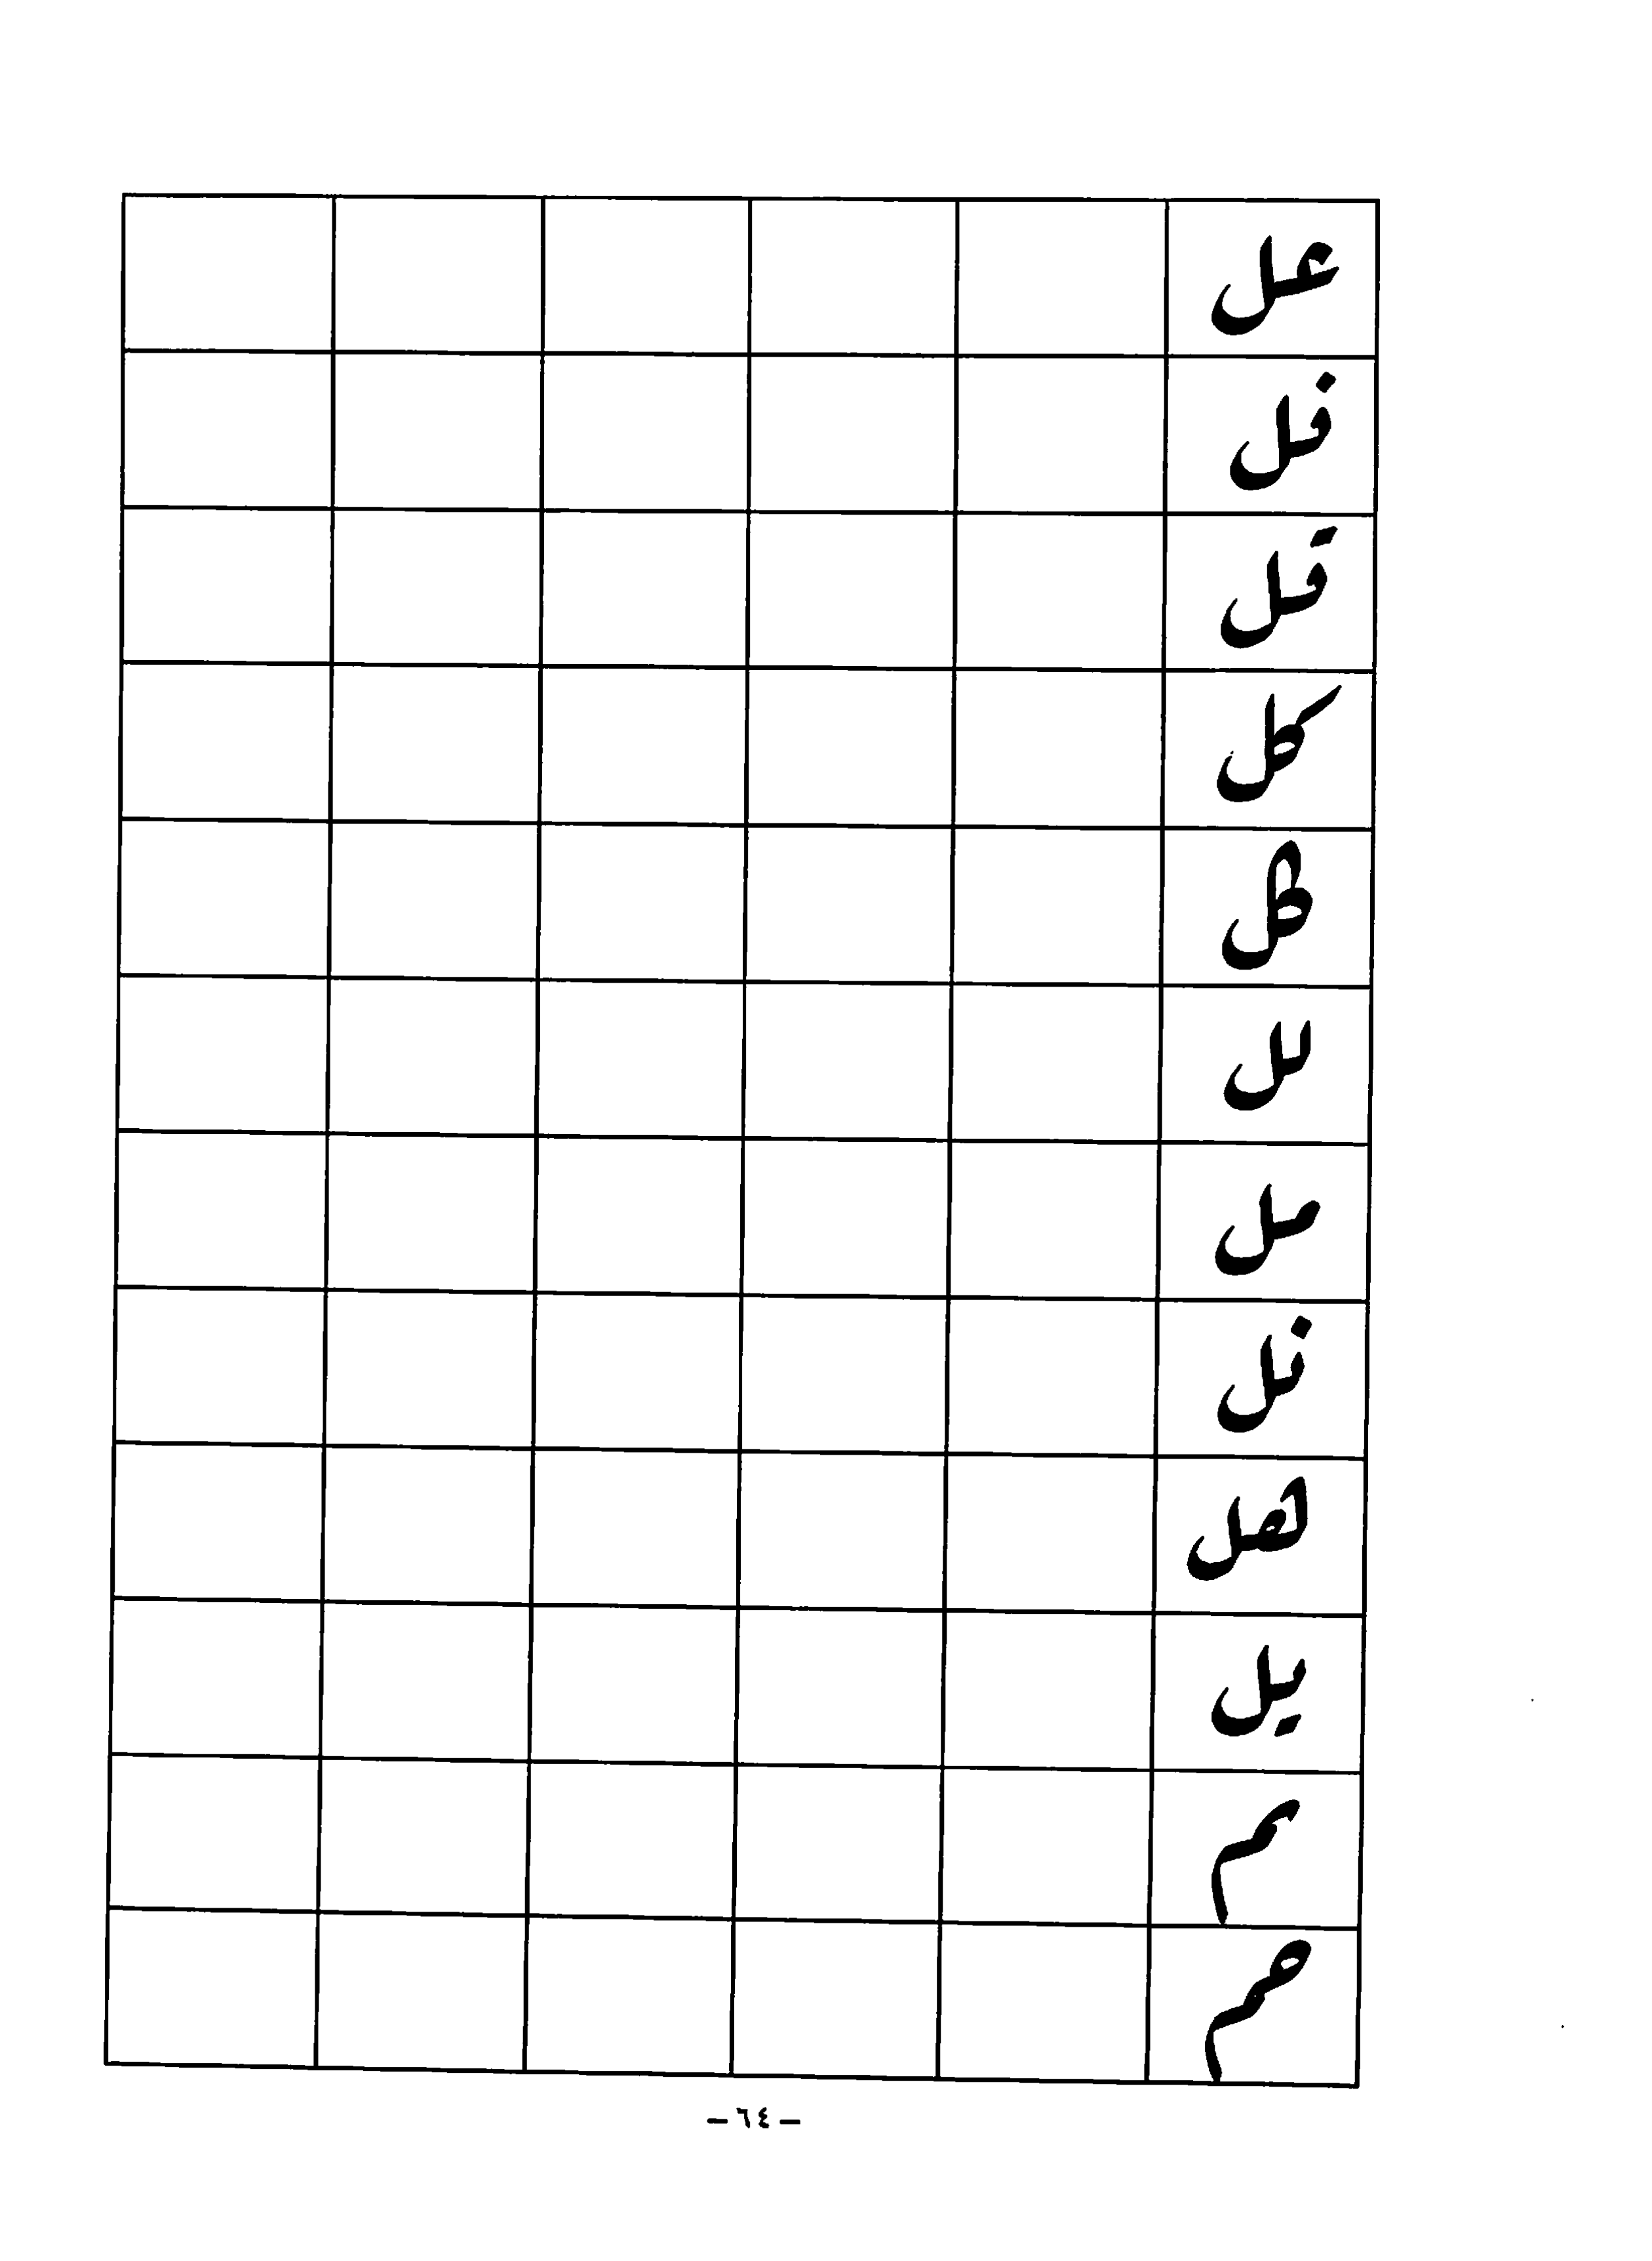 عل
فل
قل
كل
كل
لل
مل
نل
هل
يل
صم
- ٦٤ -